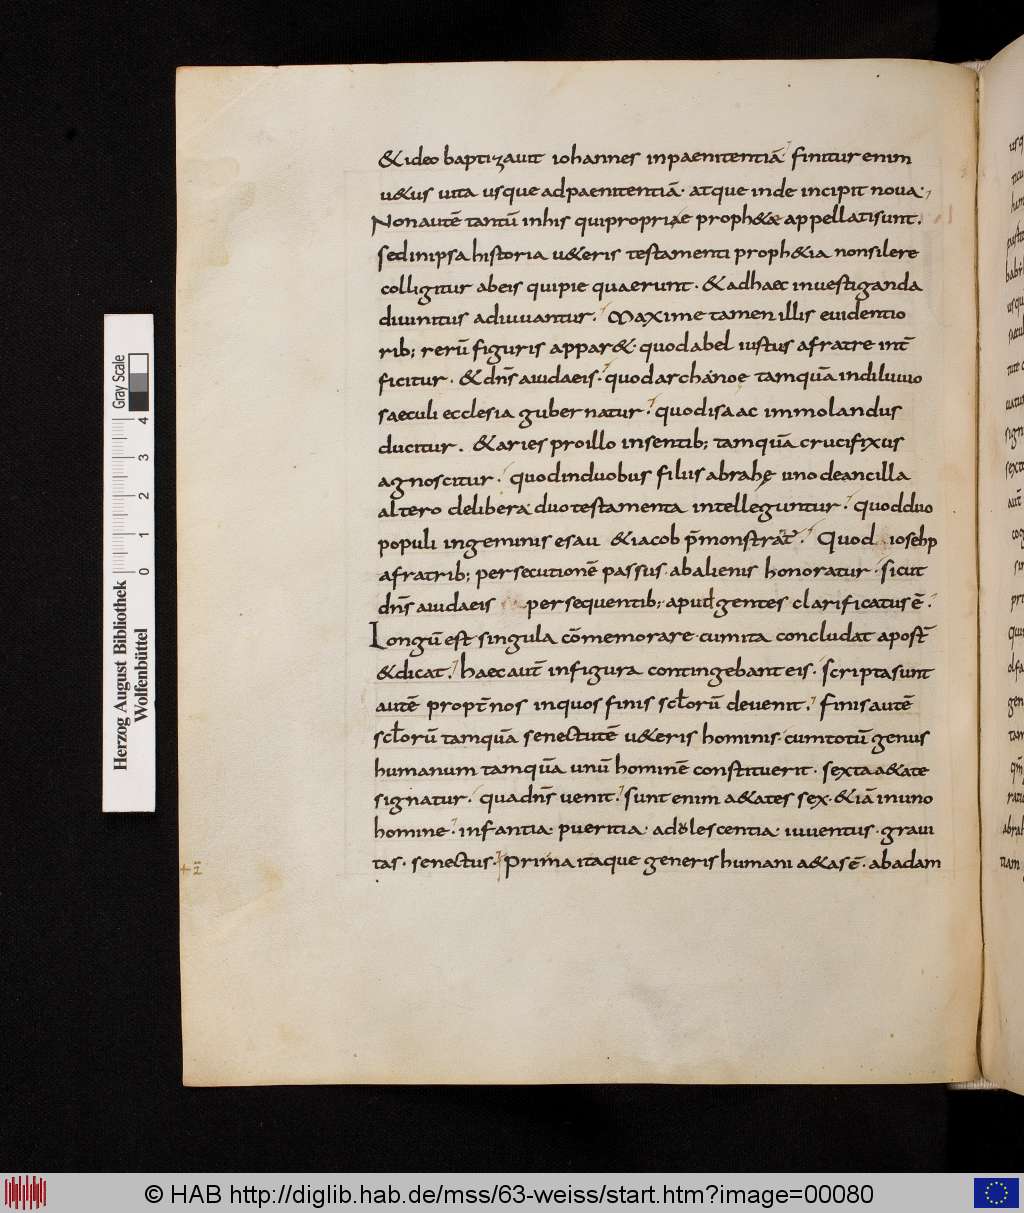 &ideo baptizauit iohannes inpaenitentiā finitur enim
u&us uita usque adpaenitentiā· atque inde incipit noua·,
Nonautē tantū inhis quipropriae proph&ae appellatisunt.
sedinipsa historia u&eris testamenti proph&ia nonsilere
colligitur abeis quipie quaerunt· &adhaec inuestiganda
diuinitus adiuuantur. Maxime tamen illis euidentio
rib; rerū figuris appar&· quodabel iustus afratre int̄
ficitur· &dn̄s aiudaeis· quodarchanoe tamquā indiluuio
saeculi ecclesia gubernatur. quodisaac immolandus
ducitur. &aries proillo insentib; tamquā crucifixus
agnoscitur· quodinduobus filiis abrahę uno deancilla
altero delibera duotestamenta intelleguntur. quodduo
populi ingeminis esau &iacob p̄monstrat̄. Quod iosehp
afratrib; persecutionē passus· abalienis honoratur· sicut
dn̄s aiudaeis persequentib; apudgentes clarificatusē.
Longū est singula cōmemorare· cumita concludat apost̄
&dicat. haecaut̄ infigura contingebanteis· scriptasunt
autē propt̄nos inquos finis sc̄lorū deuenit. finisautē
sc̄lorū tamquā senectutē u&eris hominis· cumtotū genus
humanum tamquā unū hominē constituerit· sexta a&ate
signatur· quadn̄s uenit. sunt enim a&ates sex· &iā inuno
homine· infantia· pueritia· adolescentia· iuuentus· graui
tas· senectus· Prima itaque generis humani a&asē· abadam
Herzog August Bibliothek
Wolfenbüttel
0 1 2 3 4
Gray Scale
© HAB http://diglib.hab.de/mss/63-weiss/start.htm?image=00080